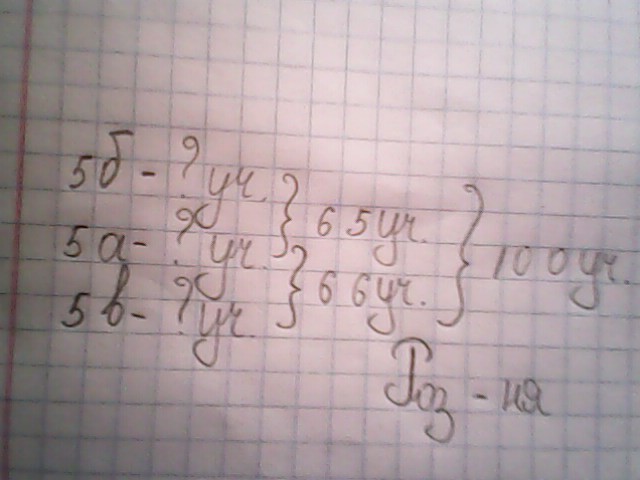 5б - ? уч.
5а - ? уч. } 65 уч. } 100 уч.
5в - ? уч. } 66 уч.
Роз - ня